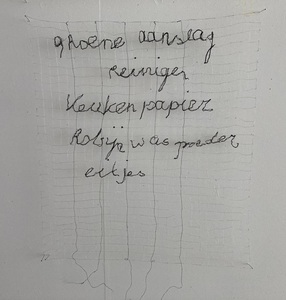 groene aanslag
reiniger
keukenpapier
Robijn waspoeder
eitjes